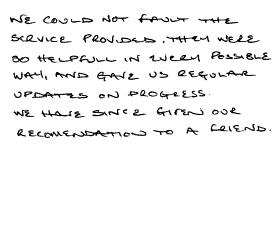 WE COULD NOT FAULT THE
SERVICE PROVIDED. THEY WERE
SO HELPFULL IN EVERY POSSIBLE
WAY, AND GAVE US REGULAR
UPDATES ON PROGRESS.
WE HAVE SINCE GIVEN OUR
RECOMENDATION TO A FRIEND.